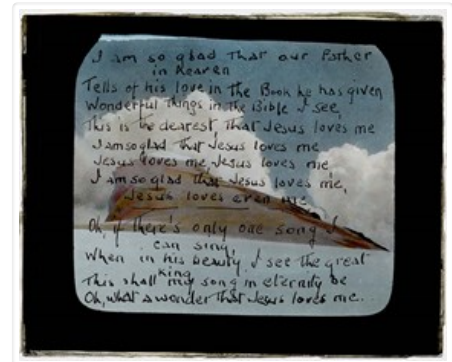 I am so glad that our Father
in Heaven
Tells of his love in the Book he has given
Wonderful things in the Bible I see,
This is the dearest, that Jesus loves me
I am so glad that Jesus loves me
Jesus loves me Jesus loves me
I am so glad that Jesus loves me,
Jesus loves even me
Oh, if there's only one song I
can sing,
When in his beauty I see the great
king
This shall my song in eternity be
Oh, what a wonder that Jesus loves me.